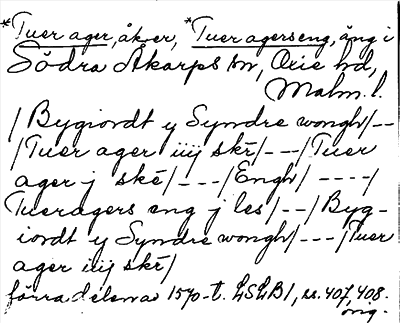 *Tuer ager, åker, *Tuer agerseng, äng i
Södra Åkarps sn, Oxie hd,
Malm. l.
/Bygiordt y Syndre wongh/--
/Tuer ager iiij skr̄/---/Tuer
ager j skē/---/Engh/----/
Tueragers eng j les/--/Byg-
iordt y Syndre wongh/---/Tuer
ager iiij skē/
förra delen av 1570-t. LSLB1, ss. 407, 408.
orig.